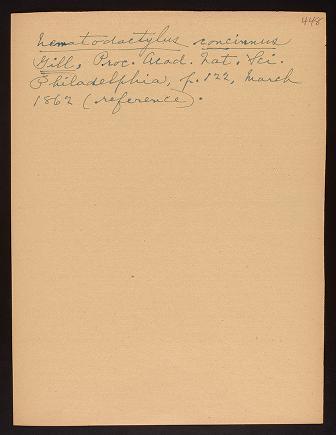 448
Nematodactylus concinnus
Gill, Proc. Acad. Nat. Sci.
Philadelphia, p. 122, March
1862 (reference).